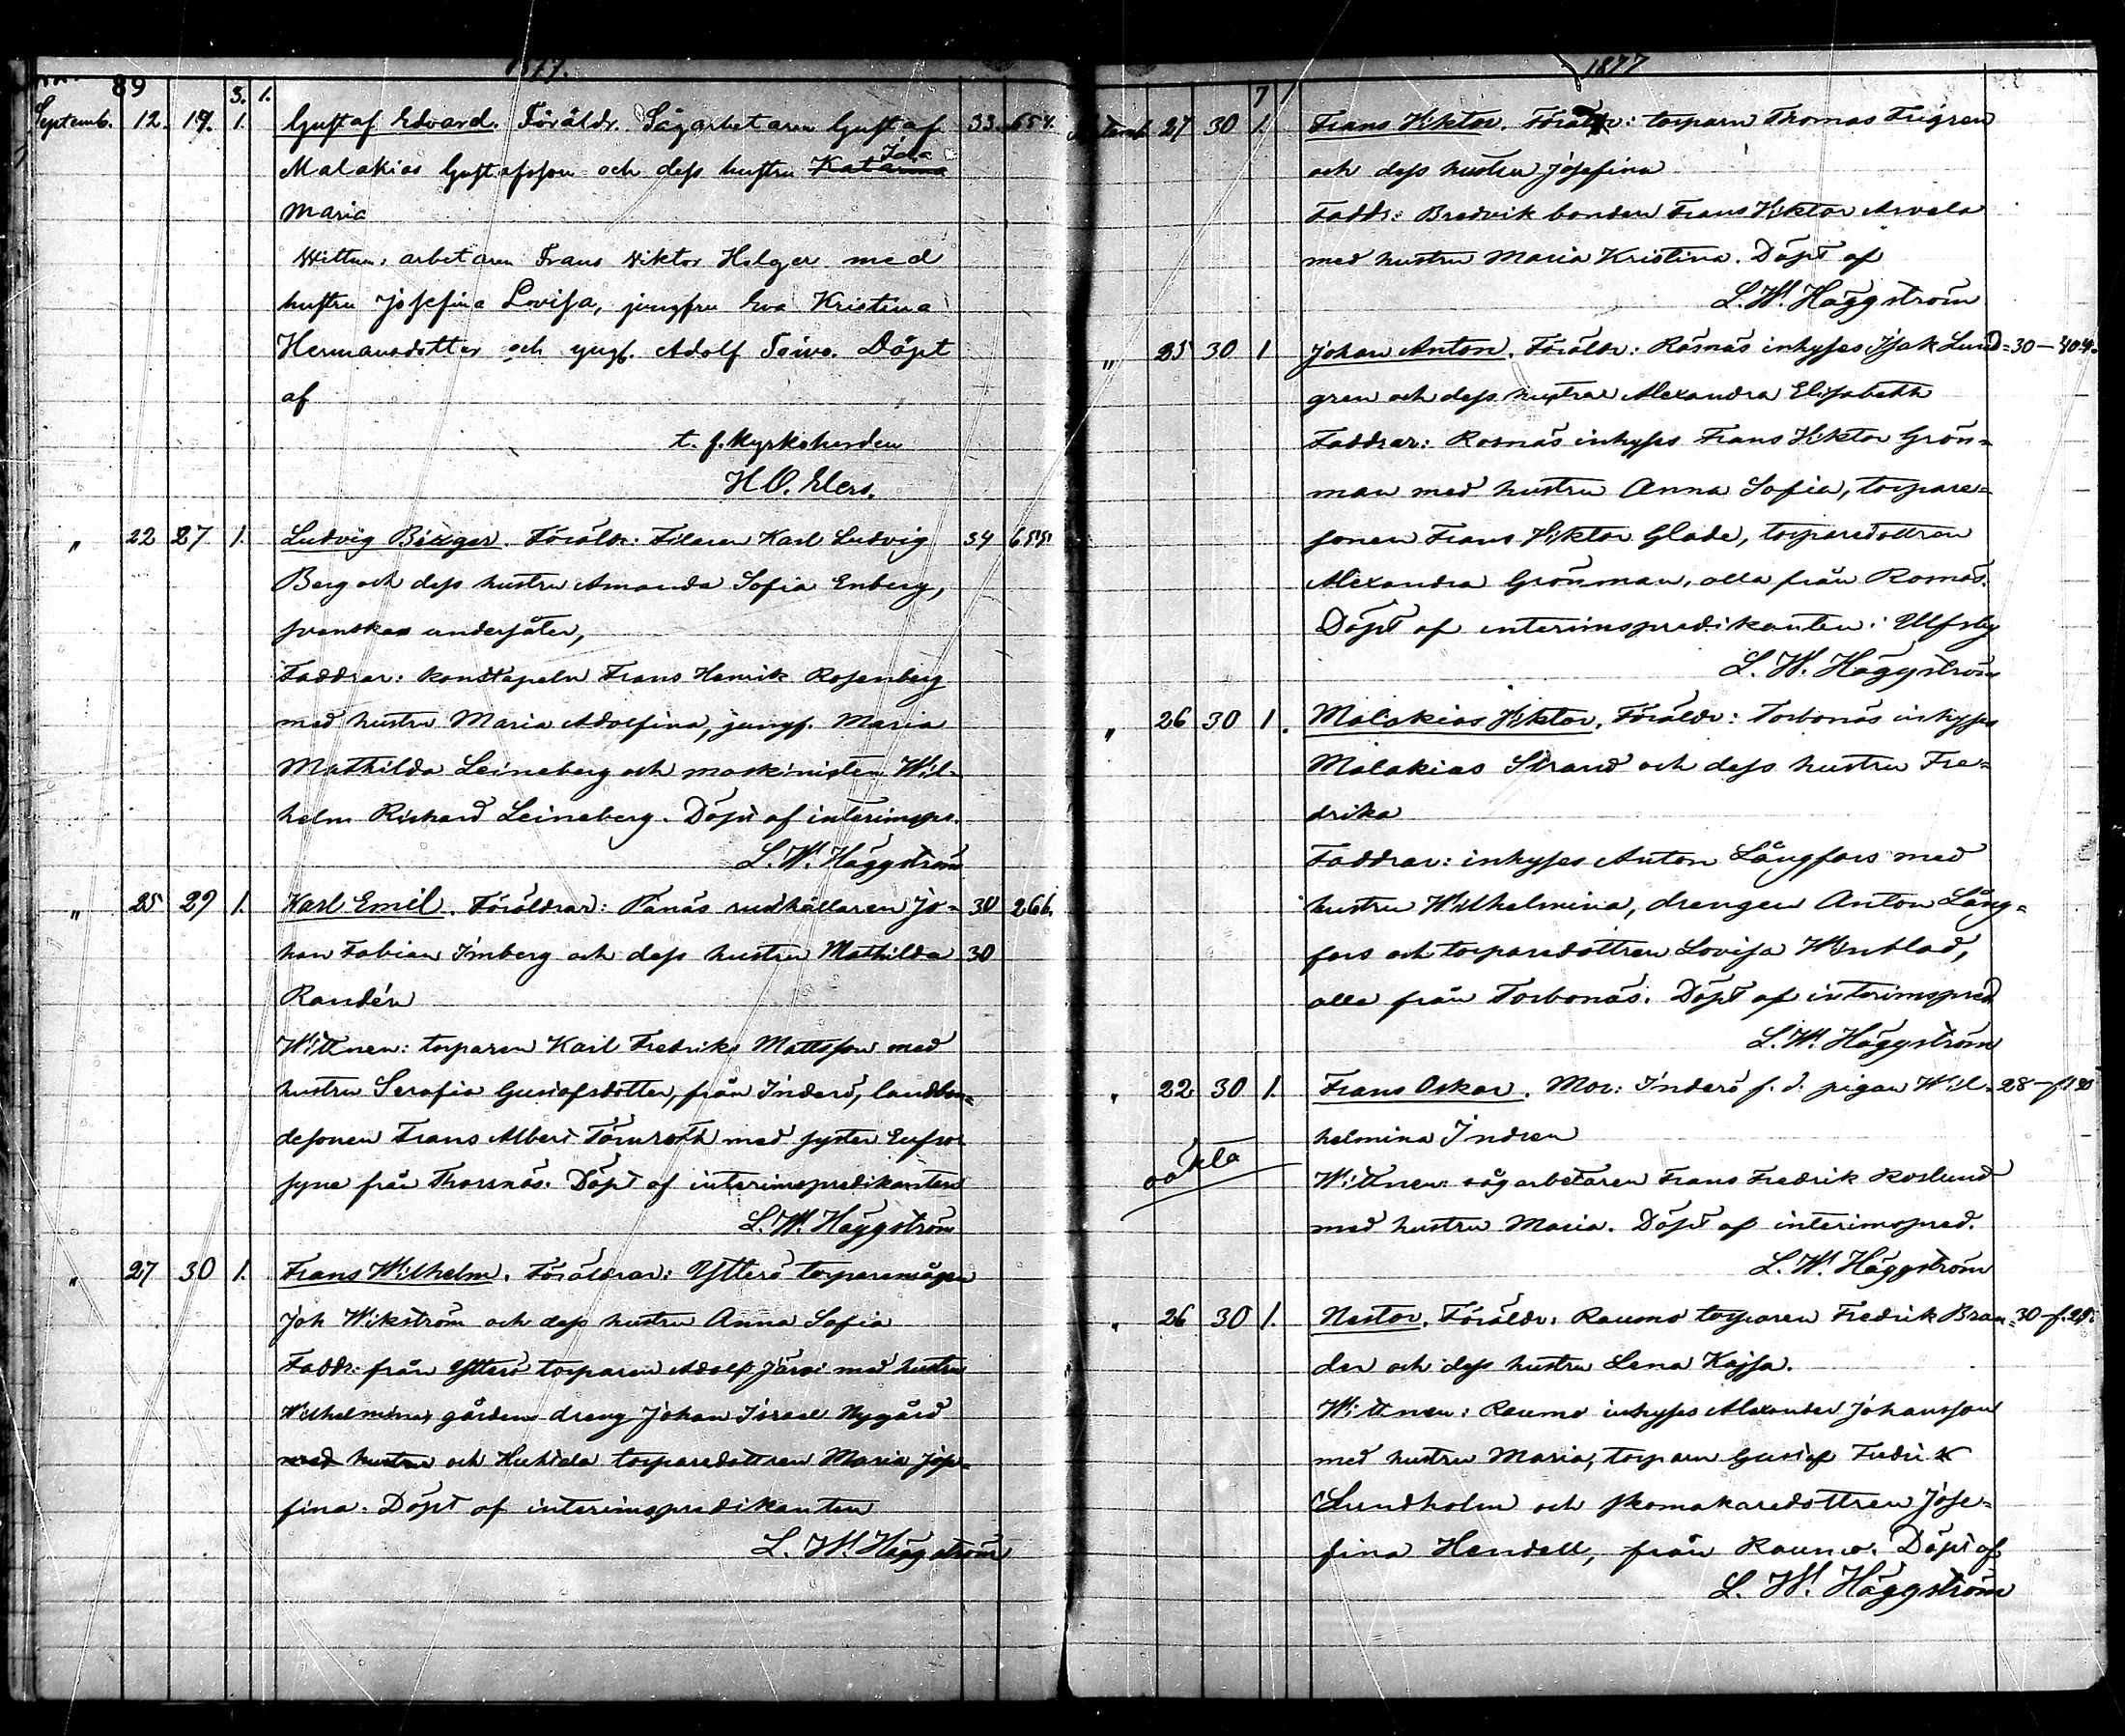 89
1877.
3. 1.
Septemb. 12. 19. 1. Gustaf Edvard. Föräldr. Sågarbetaren Gustaf 33. 654.
Malakias Gustafsson och dess hustru Katarina Ida
Maria
Wittnen: arbetaren Frans Viktor Helger med
hustru Josefina Lovisa, jungfru Eva Kristina
Hermansdotter och yngl. Adolf Toivo. Döpt
af
t. f. kyrkoherden
H O. Elers.
" 22 27 1. Ludvig Birger. Föräldr: Filaren Karl Ludvig 34 655
Berg och dess hustru Amanda Sofia Enberg,
svenska undersåter,
Faddrar: konstapeln Frans Henrik Rosenberg
med hustru Maria Adolfina, jungf. Maria
Mathilda Leineberg och maskinisten Wil-
helm Richard Leineberg. Döpt af interimspr.
L. W. Häggström
" 25 29 1. Karl Emil. Föräldrar: Pånäs rusthållaren Jo- 30 266.
han Fabian Imberg och dess hustru Mathilda 30
Randén
Wittnen: torparen Karl Fredriks Mattsson med
hustru Serafia Gustafsdotter, från Inderö, landbon-
desonen Frans Albert Törnroth med syster Eufro-
syne från Thorsnäs. Döpt af interimspredikanten
L. W. Häggström
" 27 30 1. Frans Wilhelm. Föräldrar: Ytterö torparemågen
Joh Wikström och dess hustru Anna Sofia
Faddr: från Ytterö torparen Adolf Järvi med hustru
Wilhelmina, gårdens dreng Johan Israel Nygård
med hustru och torparedottren Maria Jose-
fina. Döpt af interimspredikanten
L. W. Häggström
1877
7 1
27 30 1. Frans Viktor. Föräldr: torparn Thomas Frigren
och dess hustru Josefina
Faddr: Bredvik bonden Frans Viktor Arvela
med hustru Maria Kristina. Döpt af
L. W. Häggström
" 25 30 1 Johan Anton. Föräldr: Rosnäs inhyses Isak Lund- 30 — 404.
gren och dess hustru Alexandra Elisabeth
Faddrar: Rosnäs inhyses Frans Viktor Grön-
man med hustru Anna Sofia, torpare-
sonen Frans Viktor Glade, torparedottren
Alexandra Grönman, alla från Rosnäs.
Döpt af interimspredikanten i Ulfsby
L. W. Häggström
" 26 30 1. Malakias Viktor. Föräldr: Torbonäs inhyses
Malakias Strand och dess hustru Fre-
drika
Faddrar: inhyses Anton Långfors med
hustru Wilhelmina, drengen Anton Lång-
fors och torparedottren Lovisa Winblad,
alla från Torbonäs. Döpt af interimspred
L. W. Häggström
" 22 30 1. Frans Oskar. Mor: Inderö f. d. pigan Wil- 28 —
helmina Indren
oäkta
Wittnen: sågarbetaren Frans Fredrik Roslund
med hustru Maria. Döpt af interimspred.
L. W. Häggström
" 26 30 1. Nestor. Föräldr: Raumo torparen Fredrik Bran- 30 —
der och dess hustru Lena Kajsa.
Wittnen: Raumo inhyses Alexander Johansson
med hustru Maria, torparen Gustaf Fredrik
Lundholm och skomakaredottren Jose-
fina Hendell, från Raumo. Döpt af
L. W. Häggström